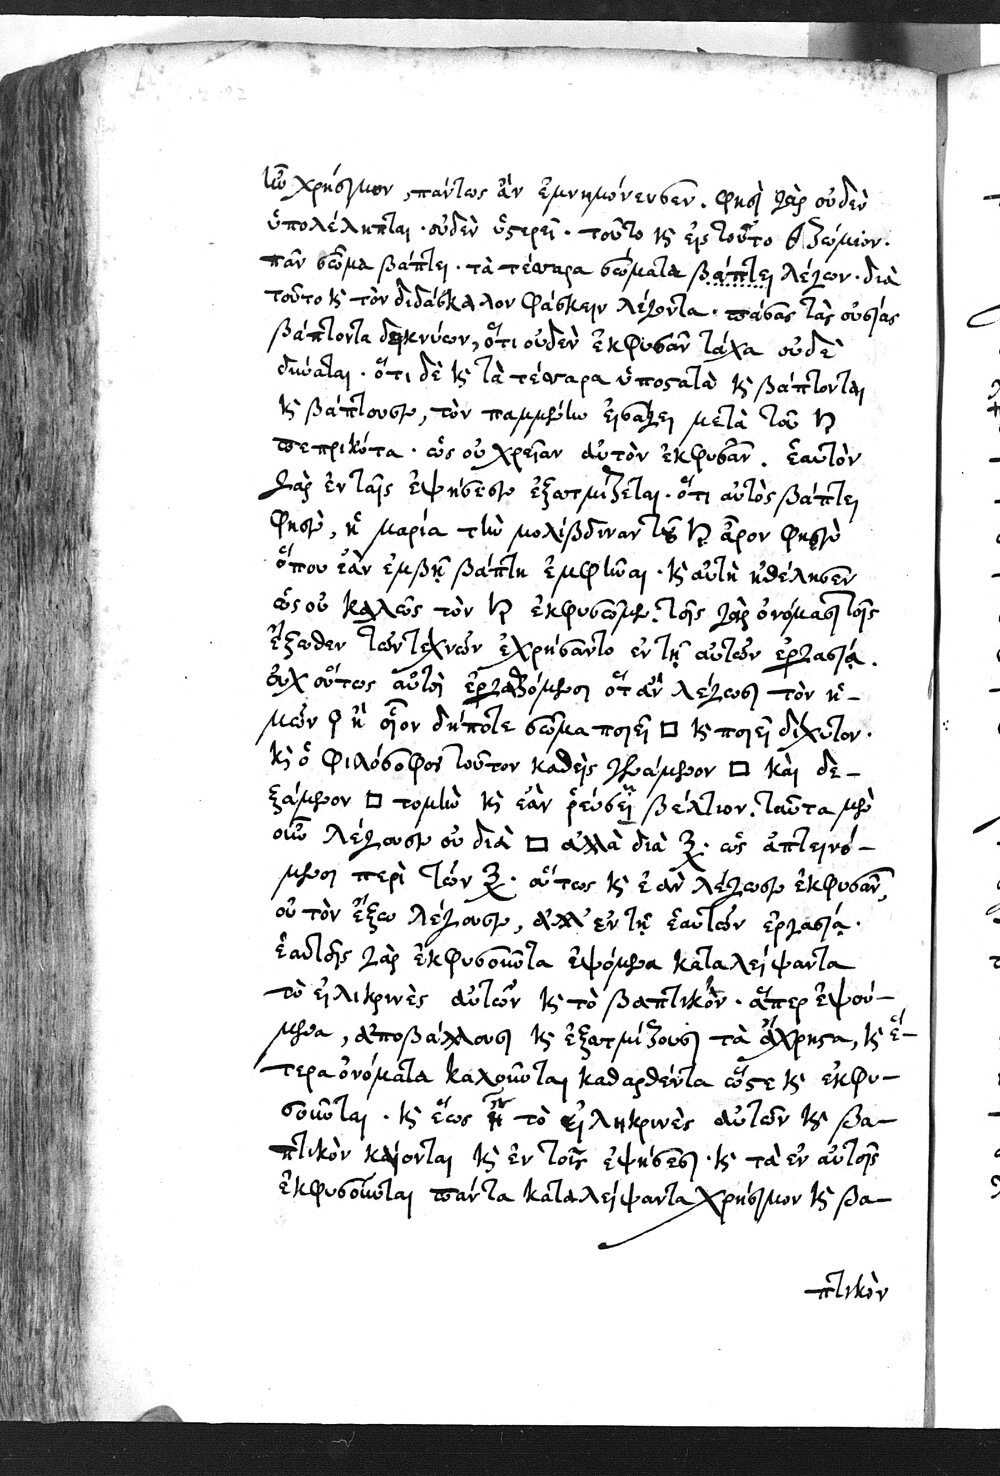 ἦν χρήσιμον, πάντως ἂν ἐμνημόνευσεν. φησὶ γὰρ οὐδὲν
ὑπολέλειπται · οὐδὲν ὑστερεῖ · τοῦτο κ εἰς τοῦτο
πᾶν σῶμα βάπτει · τὰ τέσσαρα σώματα βάπτει λέγων · διὰ
τοῦτο κ τὸν διδάσκαλον φάσκειν λέγοντα · πάσας τὰς οὐσίας
βάπτοντα δεικνύων, ὅτι οὐδὲν ἐκφυσᾶν τάχα οὐδὲ
δύναται · ὅτι δὲ κ τὰ τέσσαρα ὑποστατὰ κ βάπτονται
κ βάπτουσιν, τὸν παμμένην εἰσάγει μετὰ τοῦ ☿
πεπρικότα · ὡς οὐ χρεῖαν αὐτὸν ἐκφυσᾶν. ἑαυτὸν
γὰρ ἐν ταῖς ἑψήσεσιν ἐξατμίζεται · ὅτι αὐτὸς βάπτει
φησὶν, ἡ μαρία τὴν μολίβδιναν τοῦ ☿ ἆρον φησὶν
ὅπου ἐὰν ἐμβῇ βάπτει · κ αὐτὴ ἠθέλησεν
ὡς οὐ καλῶς τὸν ☿ ἐκφυσῶμεν. τοῖς γὰρ ὀνόμασι τοῖς
ἔξωθεν τῶν τεχνῶν ἐχρήσαντο ἐν τῇ αὐτῶν ἐργασίᾳ.
οὐχ οὕτως αὐτοὶ ἐργαζόμενοι ὅταν λέγωσι τὸν ἡ–
μῶν ἢ οἷον δήποτε σῶμα ποιεῖ □ κ ποιεῖ δίχυτον ·
κ ὁ φιλόσοφος τοῦτον καθεὶς γενάμενον □ καὶ δε–
ξάμενον □ τομὴν κ ἐὰν ῥεύσει βέλτιον. ταῦτα μὲν
οὖν λέγουσιν οὐ διὰ □ ἀλλὰ διὰ · ὡς ἀπτεινό–
μενοι περὶ τῶν · οὕτως κ ἐὰν λέγωσιν ἐκφυσᾶν,
οὐ τὸν ἔξω λέγουσιν, ἀλλ' ἐν τῇ ἑαυτῶν ἐργασίᾳ ·
ἑαυτοῖς γὰρ ἐκφυσοῦνται ἑψόμενα καταλείψαντα
τὸ εἰλικρινὲς αὐτῶν κ τὸ βαπτικόν · ἅπερ ἑψού–
μενα, ἀποβάλλουσι κ ἐξατμίζουσι τὰ ἄχρηστα, κ ἕ–
τερα ὀνόματα καλοῦνται καθαρθέντα ὥστε κ ἐκφυ–
σοῦνται · κ ἕως τὸ εἰληκρινὲς αὐτῶν κ βα–
πτικὸν καίονται κ ἐν τοῖς ἑψήσεσι · κ τὰ ἐν αὐτοῖς
ἐκφυσοῦνται πάντα καταλείψαντα χρήσιμον κ βα–
πτικὸν